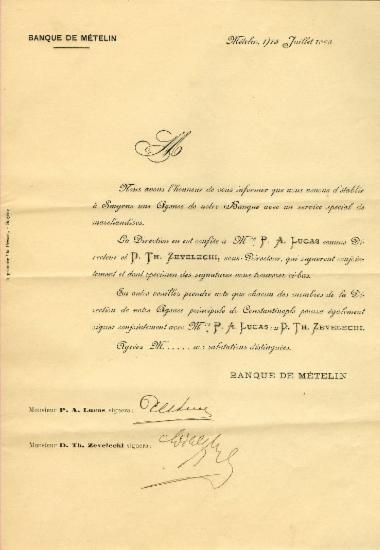 BANQUE DE MÉTELIN
Mételin, 1/13 Juillet
M
Nous avons l'honneur de vous informer que nous venons d'établir
à Smyrne une Agence de notre Banque avec un service spécial de
marchandises.
La Direction en est confiée à P. A. LUCAS comme
Directeur et D. TH. ZEVELECHI, sous-Directeur, qui signeront conjoin-
tement et dont spécimen des signatures vous trouverez ci-bas.
En outre veuillez prendre note que chacun des membres de la Di-
rection de notre Agence principale de Constantinople pourra également
signer conjointement avec P. A. LUCAS ou D. TH. ZEVELECHI.
Agréez M..... salutations distinguées.
BANQUE DE MÉTELIN
Monsieur P. A. Lucas signera:
Monsieur D. Th. Zevelechi signera: